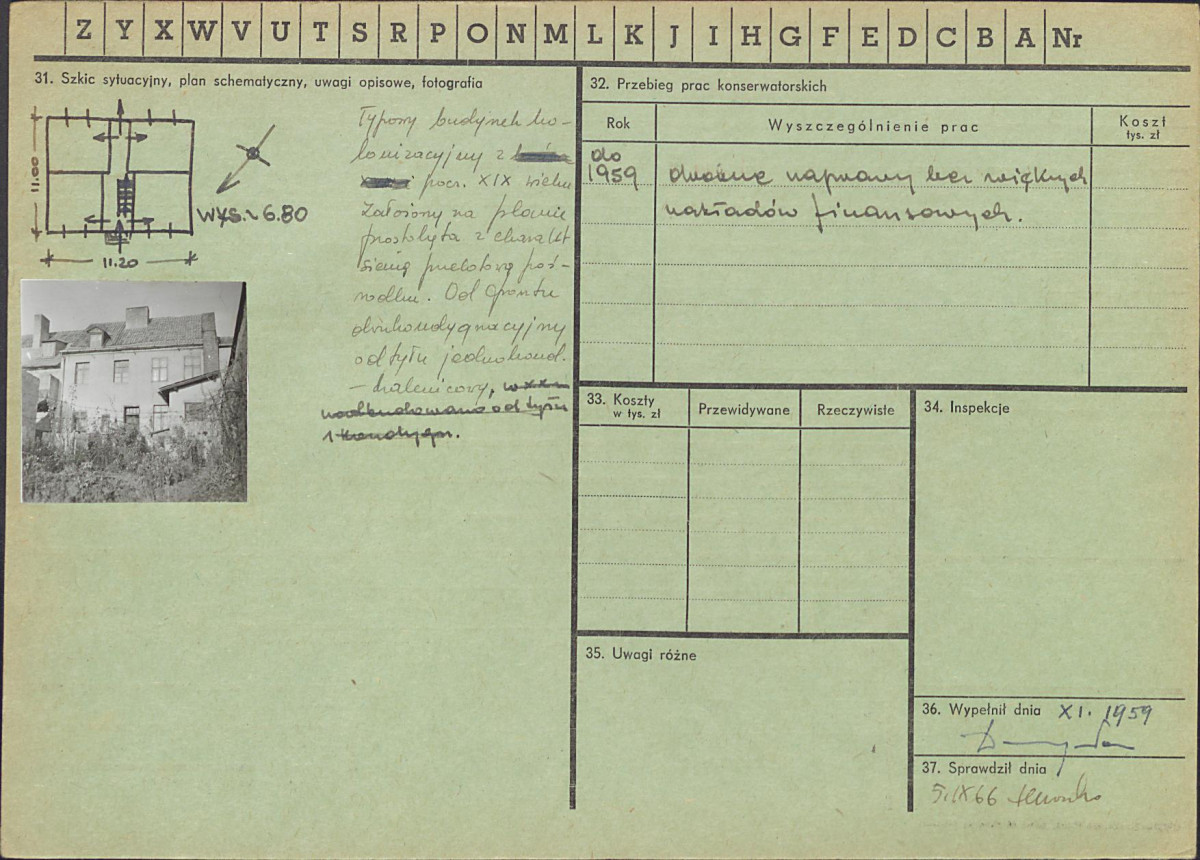 Z Y X W V U T S R P O N M L K J I H G F E D C B A Nr
31. Szkic sytuacyjny, plan schematyczny, uwagi opisowe, fotografia
11.00
WYS. ~ 6.80
11.20
Typowy budynek ko-
lonizacyjny z
pocz. XIX wieku
Założony na planie
prostokąta z charakt
sienią przelotową poś-
rodku. Od frontu
dwukondygnacyjny
od tyłu jednokond.
- kalenicowy, w XX w
nadbudowano od tyłu
1 kondygn.
32. Przebieg prac konserwatorskich
Rok
Wyszczególnienie prac
Koszt
tys. zł
do
1959
drobne naprawy bez większych
nakładów finansowych.
33. Koszty
w tys. zł
Przewidywane
Rzeczywiste
34. Inspekcje
35. Uwagi różne
36. Wypełnił dnia XI. 1959
37. Sprawdził dnia
5.IX 66